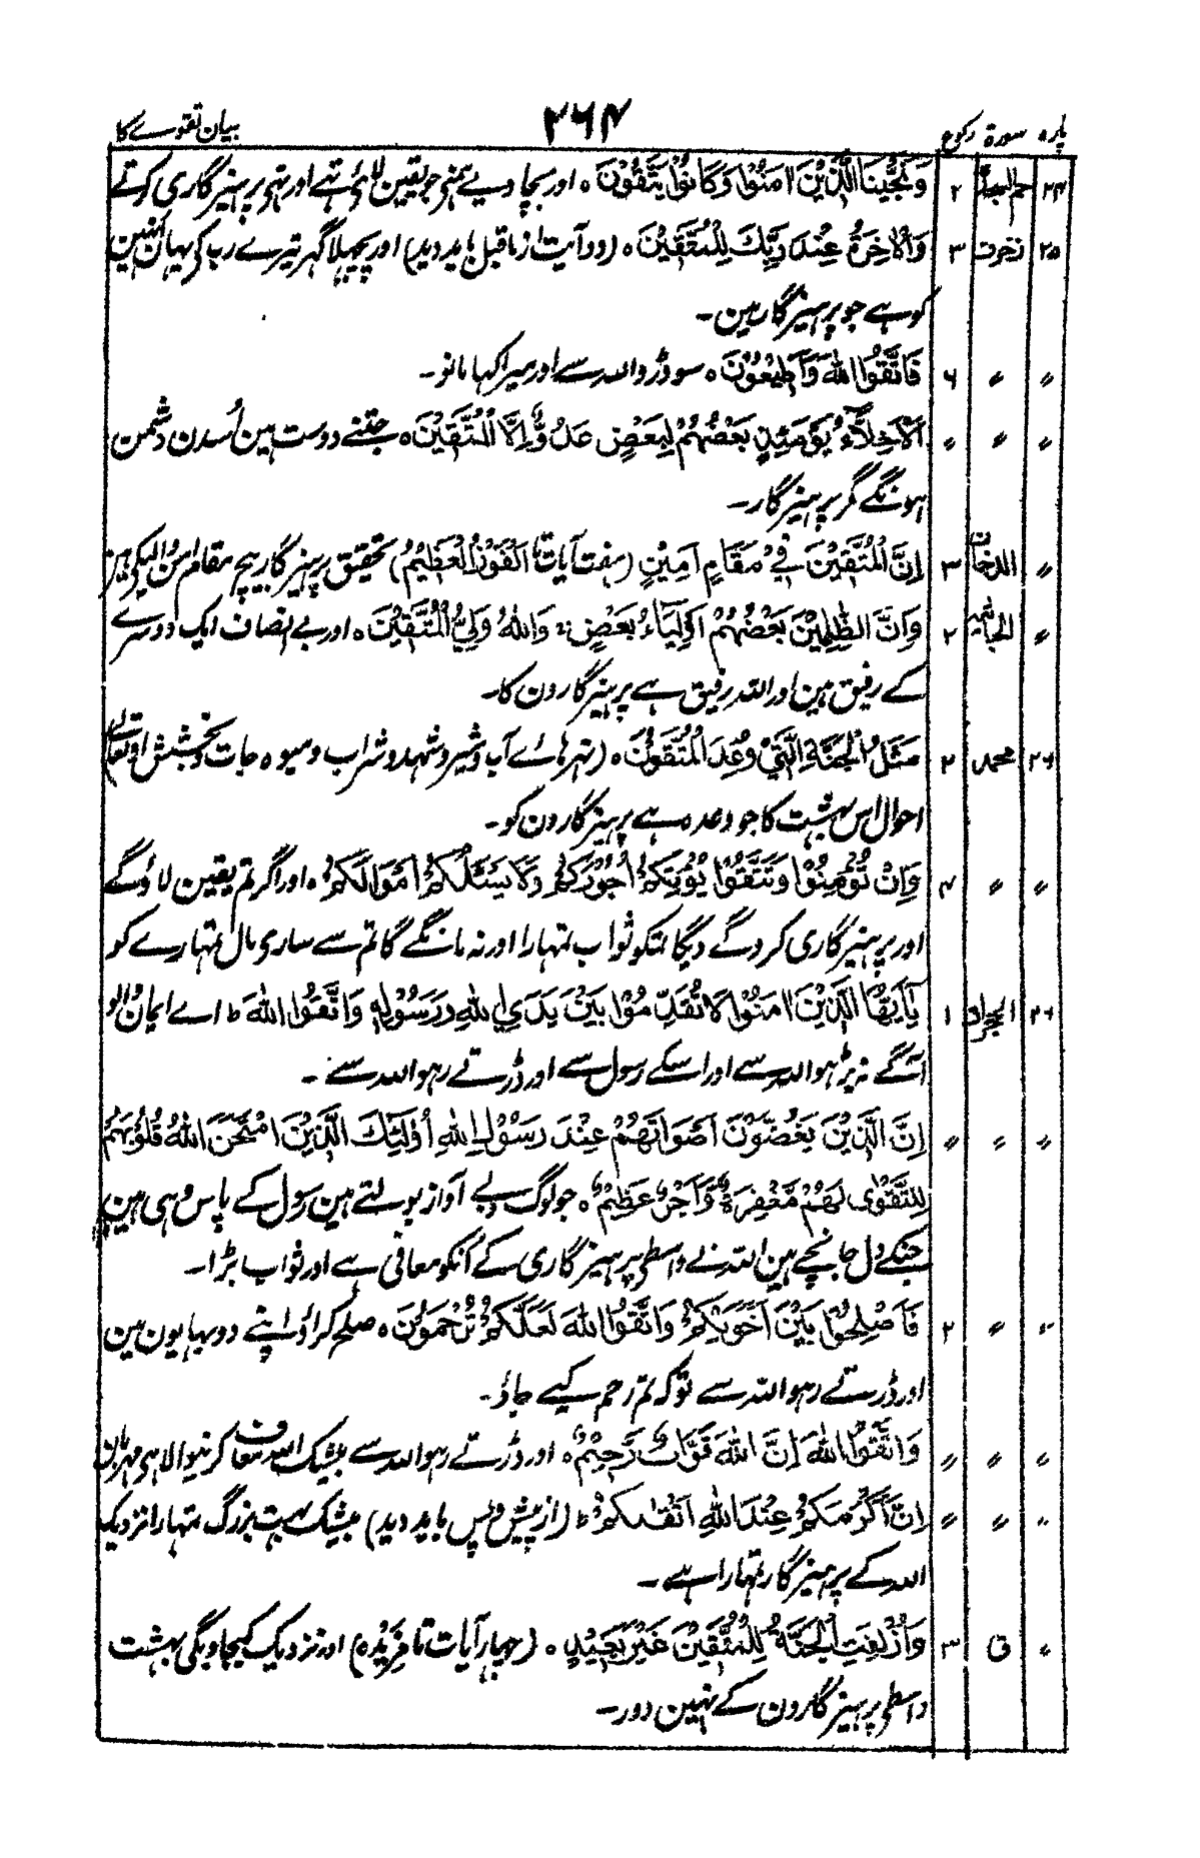 پارہ سورۃ رکوع ۲۶۴ بیان تقوے کا
۲۴ حم السجدۃ ۲ وَنَجَّيْنَا الَّذِيْنَ اٰمَنُوْا وَكَانُوْا يَتَّقُوْنَ ہ اور بچا دیے ہمنے جو یقین لائے تہے اور تہی پرہیزگاری کرتے
۲۵ زخرف ۳ وَالْاٰخِرَةُ عِنْدَ رَبِّكَ لِلْمُتَّقِيْنَ ہ (دو آیت از ماقبل باید دید) اور پچھلا گہر تیرے رب کی یہان انہین
کو ہے جو پرہیزگار ہین۔
〃 〃 ۶ فَاتَّقُوا اللّٰهَ وَاَطِيْعُوْنَ ہ سو ڈرو اللہ سے اور میرا کہا مانو۔
〃 〃 〃 اَلْاَخِلَّاۤءُ يَوْمَئِذٍ بَعْضُهُمْ لِبَعْضٍ عَدُوٌّ اِلَّا الْمُتَّقِيْنَ ہ جتنے دوست ہین اُسدن دشمن
ہونگے مگر پرہیزگار۔
〃 الدخان ۳ اِنَّ الْمُتَّقِيْنَ فِيْ مَقَامٍ اَمِيْنٍ (ہفت آیات تا الْفَوْزُ الْعَظِيْمُ) تحقیق پرہیزگار بیچ مقام امن والیکی ہین
〃 الجاثیہ ۲ وَاِنَّ الظّٰلِمِيْنَ بَعْضُهُمْ اَوْلِيَاۤءُ بَعْضٍ ۚ وَاللّٰهُ وَلِيُّ الْمُتَّقِيْنَ ہ اور بے انصاف ایک دوسرے
کے رفیق ہین اور اللہ رفیق ہے پرہیزگارون کا۔
۲۶ محمد ۲ مَثَلُ الْجَنَّةِ الَّتِيْ وُعِدَ الْمُتَّقُوْنَ ہ (نہرہائے آب و شیر و شہد و شراب و میوہ جات و بخشش او تعالے)
احوال اس بہشت کا جو وعدہ ہے پرہیزگارون کو۔
〃 〃 ۴ وَاِنْ تُؤْمِنُوْا وَتَتَّقُوْا يُؤْتِكُمْ اُجُوْرَكُمْ وَلَا يَسْئَلْكُمْ اَمْوَالَكُمْ ہ اور اگر تم یقین لاؤ گے
اور پرہیزگاری کرو گے دیگا تمکو ثواب تمہارا اور نہ مانگے گا تم سے ساری مال تمہارے کو
۲۶ الحجرات ۱ يٰۤاَيُّهَا الَّذِيْنَ اٰمَنُوْا لَا تُقَدِّمُوْا بَيْنَ يَدَيِ اللّٰهِ وَرَسُوْلِهٖ وَاتَّقُوا اللّٰهَ ط اے ایمان والو
آگے نہ بڑہو اللہ سے اور اسکے رسول سے اور ڈرتے رہو اللہ سے۔
〃 〃 〃 اِنَّ الَّذِيْنَ يَغُضُّوْنَ اَصْوَاتَهُمْ عِنْدَ رَسُوْلِ اللّٰهِ اُولٰۤئِكَ الَّذِيْنَ امْتَحَنَ اللّٰهُ قُلُوْبَهُمْ
لِلتَّقْوٰى لَهُمْ مَّغْفِرَةٌ وَّاَجْرٌ عَظِيْمٌ ہ جو لوگ دبے آواز بولتے ہین رسول کے پاس وہی ہین
جنکے دل جانچے ہین اللہ نے واسطی پرہیزگاری کے اُنکو معافی ہے اور ثواب بڑا۔
〃 〃 ۲ فَاَصْلِحُوْا بَيْنَ اَخَوَيْكُمْ وَاتَّقُوا اللّٰهَ لَعَلَّكُمْ تُرْحَمُوْنَ ہ صلح کراؤ اپنے دو بہایون مین
اور ڈرتے رہو اللہ سے توکہ تم رحم کیے جاؤ۔
〃 〃 〃 وَاتَّقُوا اللّٰهَ اِنَّ اللّٰهَ تَوَّابٌ رَّحِيْمٌ ہ اور ڈرتے رہو اللہ سے بیشک اللہ معاف کرنیوالا ہی مہربان
〃 〃 〃 اِنَّ اَكْرَمَكُمْ عِنْدَ اللّٰهِ اَتْقٰىكُمْ ط (از پیش و پس باید دید) بیشک بہت بزرگ تمہارا نزدیک
اللہ کے پرہیزگار تمہارا ہے۔
〃 ق ۳ وَاُزْلِفَتِ الْجَنَّةُ لِلْمُتَّقِيْنَ غَيْرَ بَعِيْدٍ ہ (چہار آیات تا مَزِيْدٌ ہ) اور نزدیک کیجاویگی بہشت
واسطی پرہیزگارون کے نہین دور۔